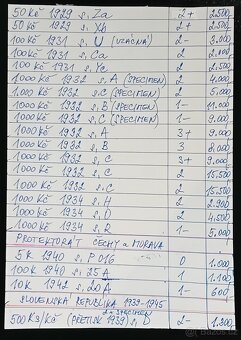 50 Kč 1929 s. Za 2+ 2.500
50 Kč 1929 s. Xb 2- 2.500
100 Kč 1931 s. U (vzácná) 2- 3.000
100 Kč 1931 s. Ca 2- 2.000
100 Kč 1931 s. Yc 2 2.500
1000 Kč 1932 s. A (SPECIMEN) 2- 4.000
1.000 Kč 1932 s. C (SPECIMEN) 2 5.000
1000 Kč 1932 s. B (SPECIMEN) 1- 11.000
1000 Kč 1932 s. C (SPECIMEN) 1- 9.000
1000 Kč 1932 s. A 3+ 9.000
1000 Kč 1932 s. B 3 8.000
1000 Kč 1932 s. C 3+ 9.000
1000 Kč 1932 s. C 2 15.500
1.000 Kč 1932 s. C 2 15.500
1000 Kč 1934 s. H 2- 2.900
1000 Kč 1934 s. D 2 4.500
1000 Kč 1934 s. R 1- 5.000
PROTEKTORÁT ČECHY a MORAVA
5 K 1940 s. P 016 0 1.000
100 K 1940 s. 35 A 1 1.100
10 K 1942 s. 20 A 1- 600
SLOVENSKÁ REPUBLIKA 1939-1945
500 Kč (PŘETISK 1939) s. D 2- 1.200